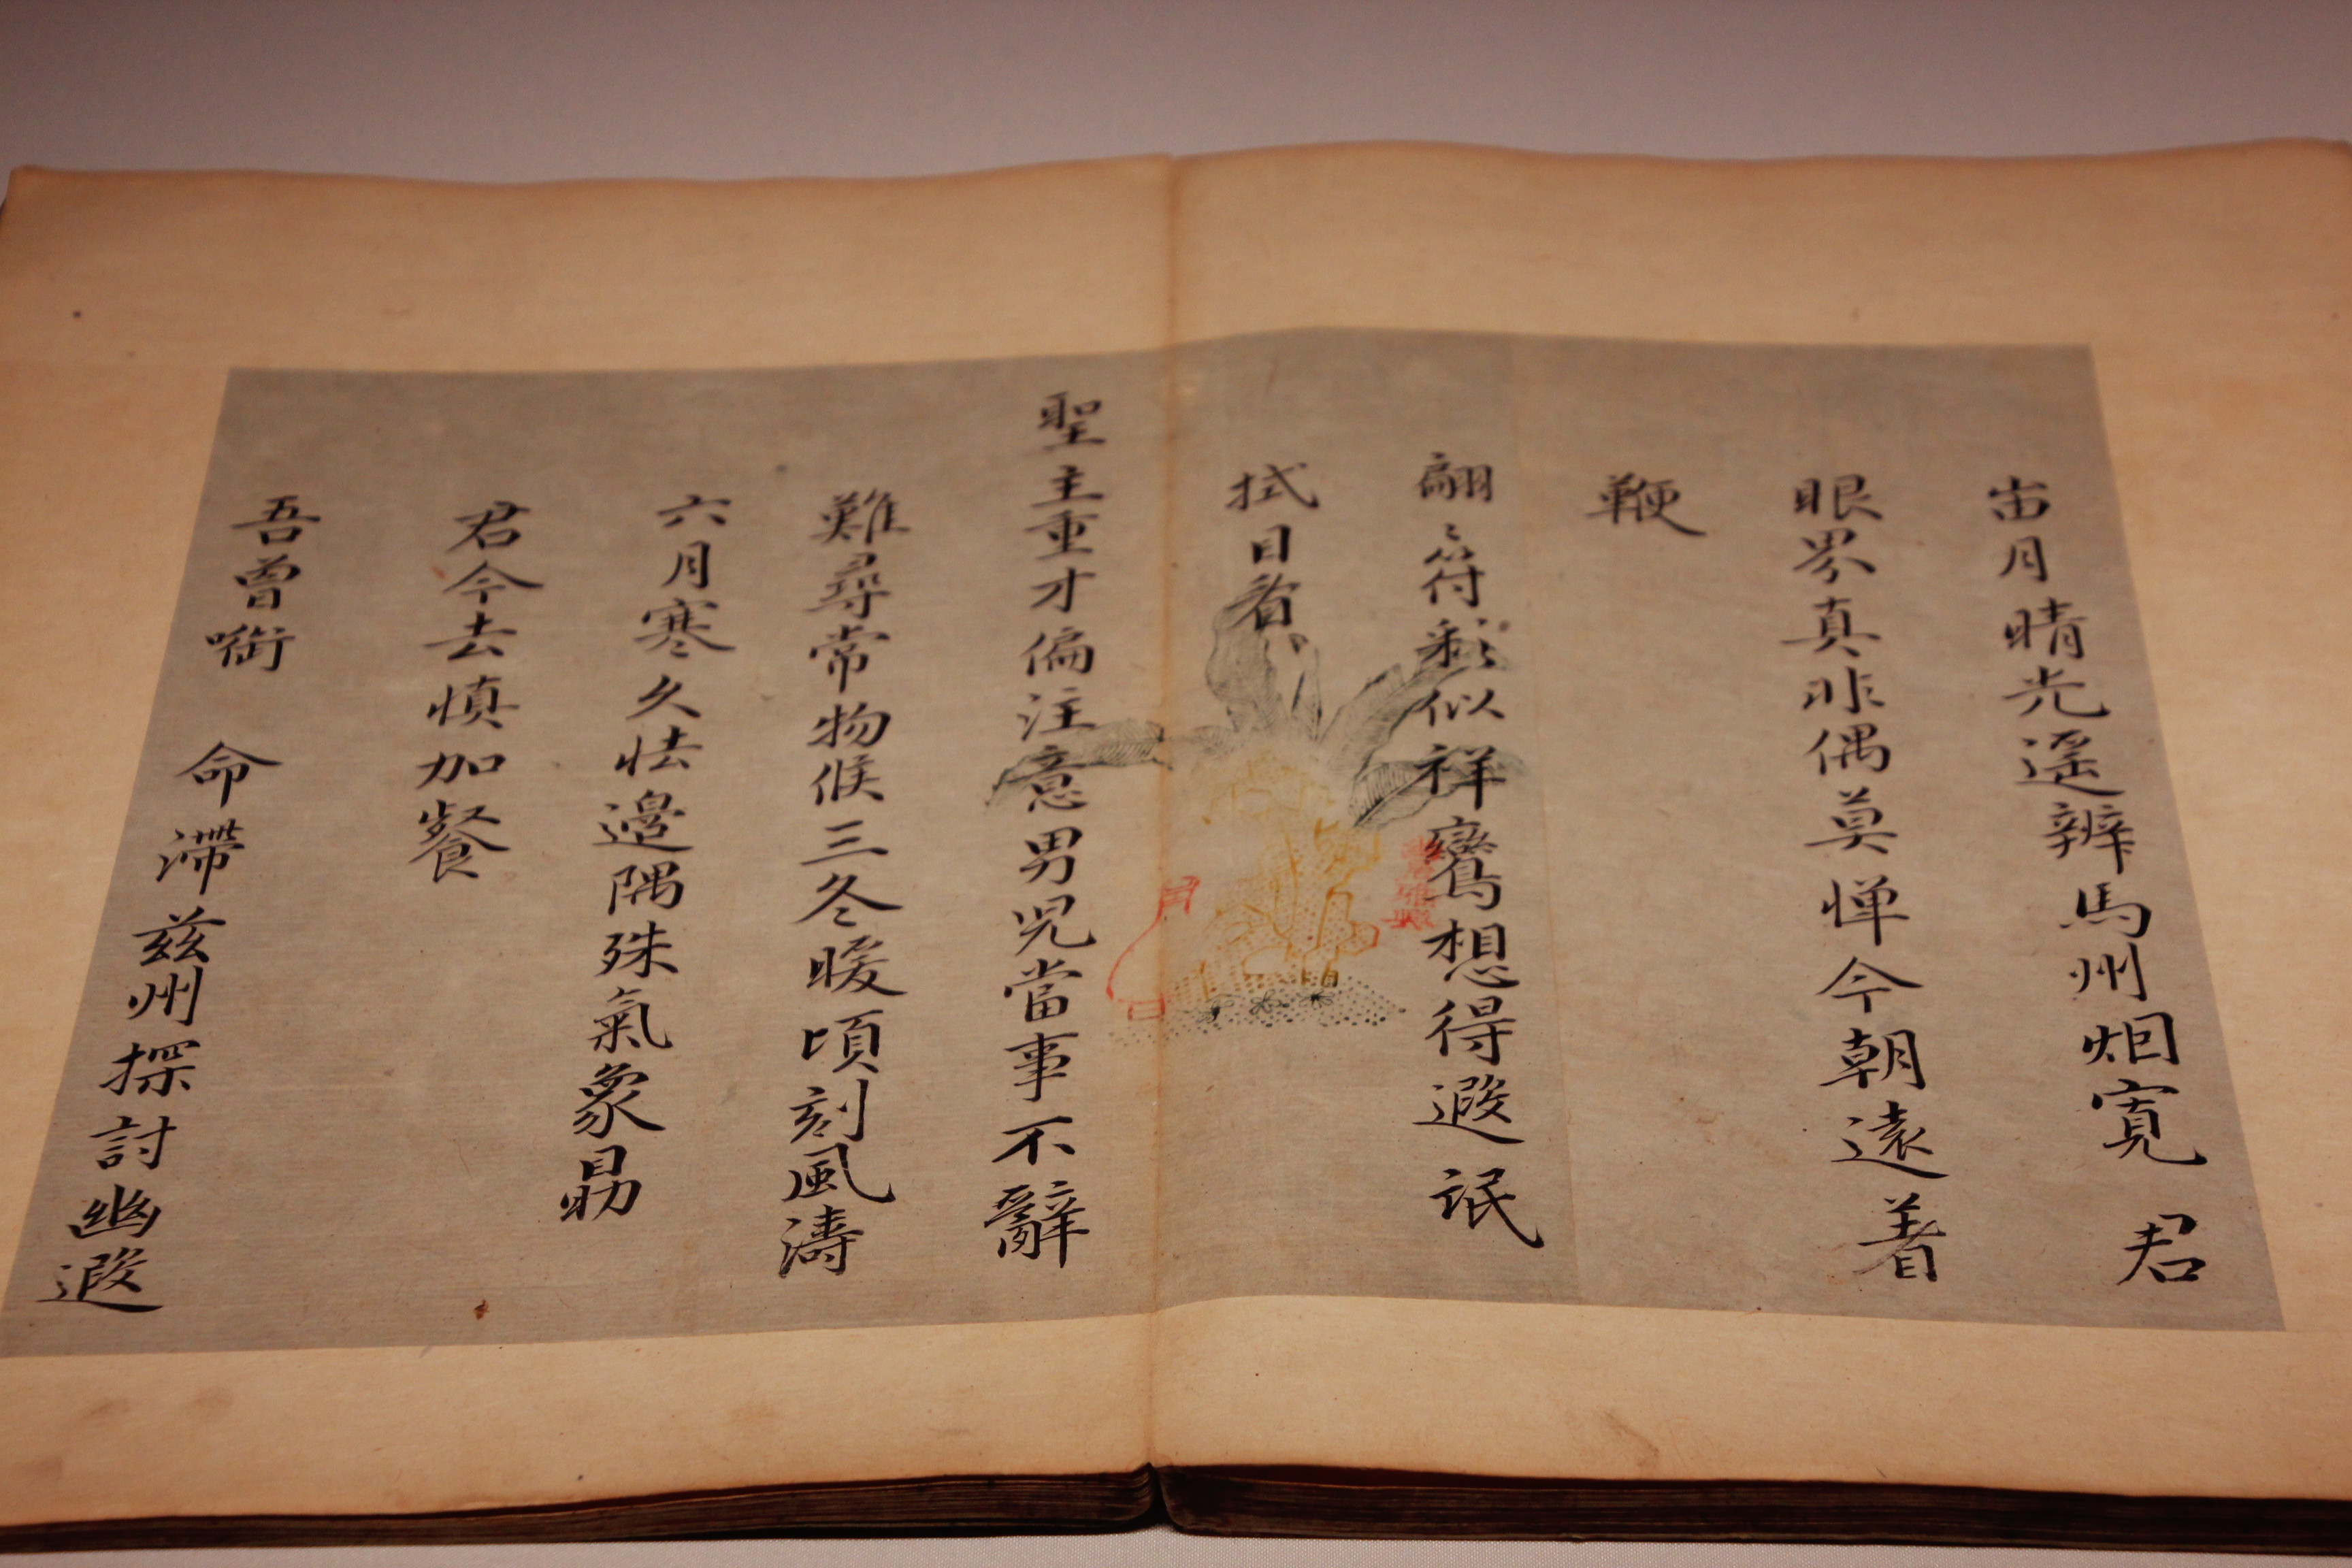 出月晴光遥辨馬州烟寬君
眼界真非偶莫惮今朝遠着
鞭
翩〻符彩似祥鸞想得遐氓
拭目看
聖主重才偏注意男児當事不辭
難尋常物候三冬暖頃刻風濤
六月寒久怯邊隅殊氣象勗
君今去慎加餐
吾曾啣 命滯兹州探討幽遐